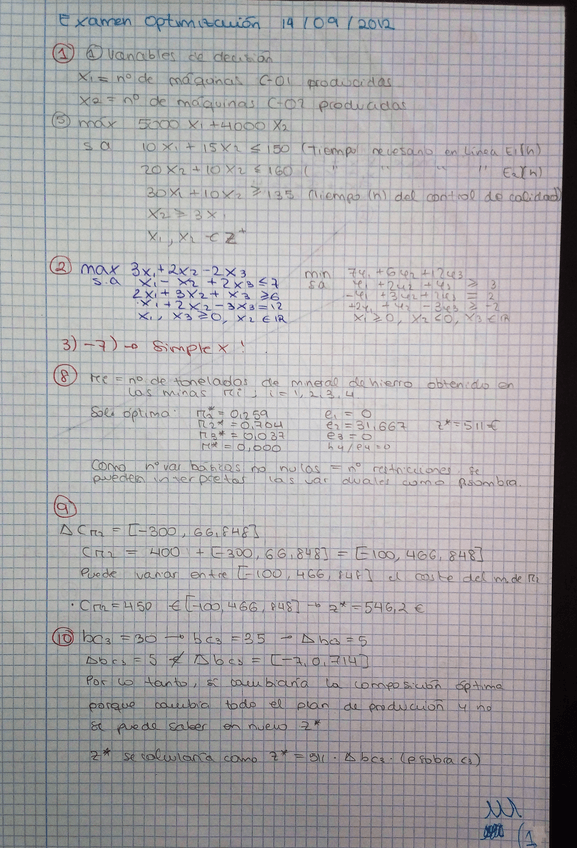 Examen Optimización 19/09/2012
① ① Variables de decisión
X₁ = nº de máquinas C-01 producidas
X₂ = nº de máquinas C-02 producidas
③ max 5000 X₁ + 4000 X₂
s.a 10X₁ + 15X₂ ≤ 150 (Tiempo necesario en línea E₁(h)
20X₂ + 10X₂ ≤ 160 ( " " " " E₂)(h)
30X₁ + 10X₂ ≥ 135 (Tiempo (h) del control de calidad)
X₂ ≥ 3X₁
X₁, X₂ ∈ Z⁺
② max 3X₁ + 2X₂ - 2X₃ min 7y₁ + 6y₂ + 12y₃
s.a X₁ - X₂ + 2X₃ ≤ 7 sa y₁ + 2y₂ + y₃ ≥ 3
2X₁ + 3X₂ + X₃ ≥ 6 -y₁ + 3y₂ + 2y₃ = 2
X₁ + 2X₂ - 3X₃ = 12 +2y₁ + y₂ - 3y₃ ≥ -2
X₁, X₃ ≥ 0, X₂ ∈ IR X₁ ≥ 0, X₂ < 0, X₃ ∈ IR
3) - 7) → Simplex!
⑧ = nº de toneladas de mineral de hierro obtenido en
las minas i = 1, 2, 3, 4
Sol óptima: = 0,259 e₁ = 0
= 0,704 e₂ = 31,667 z* = 511 €
= 0,037 e₃ = 0
= 0,000
Como nº var básicas no nulas = nº restricciones se
pueden interpretar las var duales como psombra.
⑨
= [-300, 66,848]
= 400 + [-300, 66,848] = [-100, 466,848]
Puede variar entre [-100, 466,848] el coste del m de
= 450 € [-100, 466,848] → z* = 546,2 €
⑩ bc₃ = 30 → bc₃ = 35 → Δb = 5
Δbc₃ = 5 ∉ Δbc₃ = [-7, 0,714]
Por lo tanto, se cambiaría la composición óptima
porque cambia todo el plan de producción y no
se puede saber en nuevo z*
z* se calcularía como z* = 511 · Δbc₃ ·